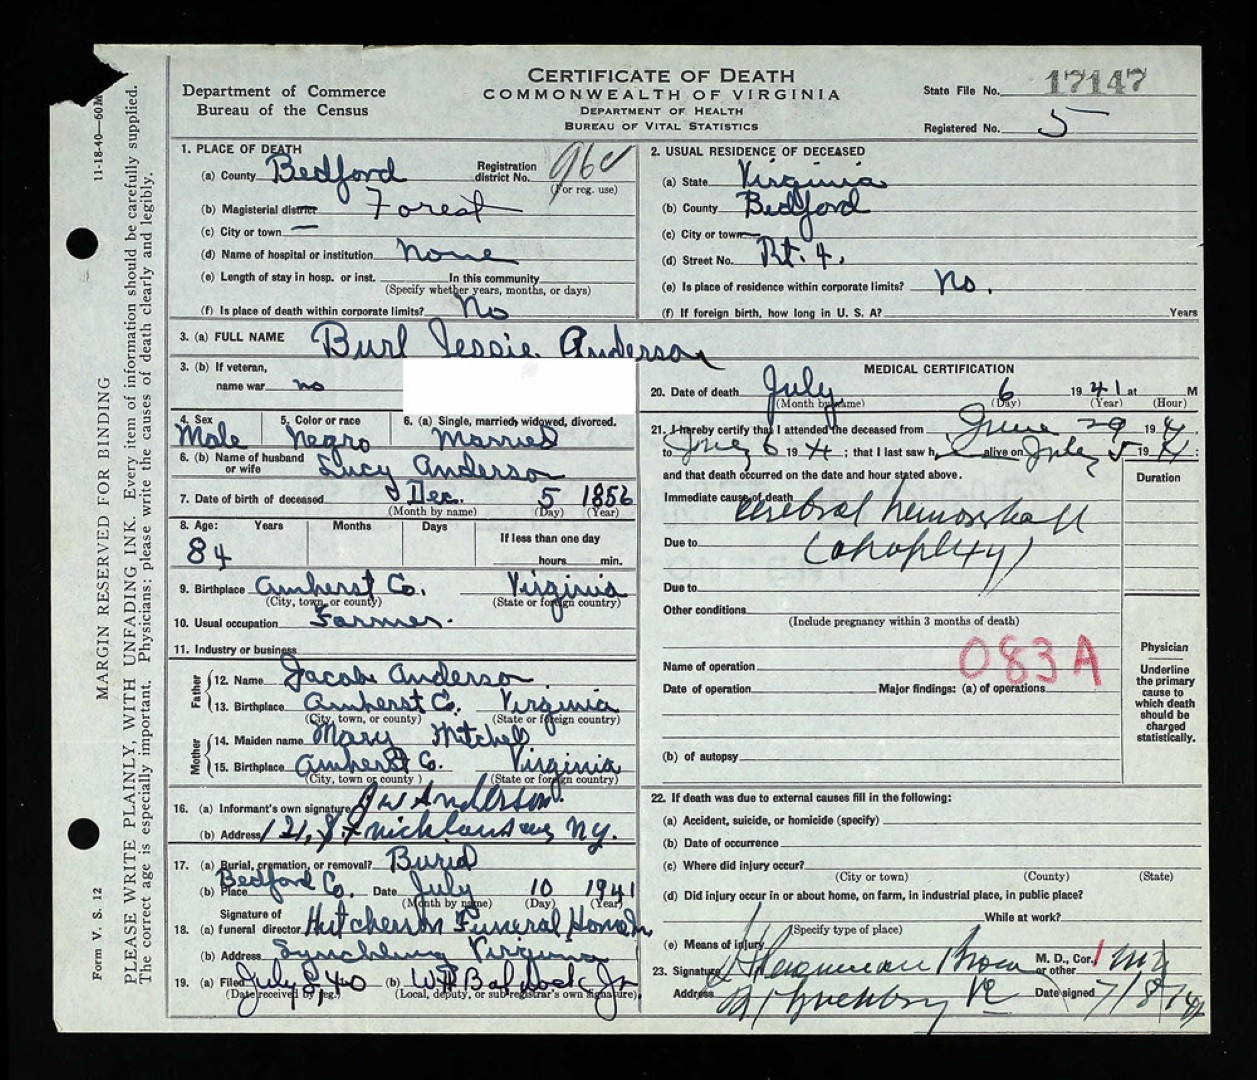 CERTIFICATE OF DEATH
COMMONWEALTH OF VIRGINIA
DEPARTMENT OF HEALTH
BUREAU OF VITAL STATISTICS
Department of Commerce
Bureau of the Census
State File No. 17147
Registered No. 5
11-18-40—60M
MARGIN RESERVED FOR BINDING
PLEASE WRITE PLAINLY, WITH UNFADING INK. Every item of information should be carefully supplied.
The correct age is especially important. Physicians: please write the causes of death clearly and legibly.
Form V. S. 12
1. PLACE OF DEATH
(a) County Bedford Registration district No. 96c
(For reg. use)
(b) Magisterial district Forest
(c) City or town —
(d) Name of hospital or institution None
(e) Length of stay in hosp. or inst. In this community
(Specify whether years, months, or days)
(f) Is place of death within corporate limits? No
2. USUAL RESIDENCE OF DECEASED
(a) State Virginia
(b) County Bedford
(c) City or town —
(d) Street No. Rt. 4.
(e) Is place of residence within corporate limits? No.
(f) If foreign birth, how long in U. S. A? Years
3. (a) FULL NAME Burl Jessie Anderson
3. (b) If veteran,
name war no
4. Sex Male
5. Color or race Negro
6. (a) Single, married, widowed, divorced. Married
6. (b) Name of husband or wife Lucy Anderson
7. Date of birth of deceased Dec. 5 1856
(Month by name) (Day) (Year)
8. Age: Years Months Days If less than one day
84 hours min.
9. Birthplace Amherst Co. Virginia
(City, town, or county) (State or foreign country)
10. Usual occupation Farmer.
11. Industry or business
Father
12. Name Jacob Anderson
13. Birthplace Amherst Co. Virginia
(City, town, or county) (State or foreign country)
Mother
14. Maiden name Mary Mitchel
15. Birthplace Amherst Co. Virginia
(City, town or county) (State or foreign country)
16. (a) Informant's own signature J W Anderson.
(b) Address 121, St N.Y.
17. (a) Burial, cremation, or removal? Buried
(b) Place Bedford Co. Date July 10 1941
(Month by name) (Day) (Year)
Signature of
18. (a) funeral director Hutcherson Funeral Home
(b) Address Lynchburg Virginia
19. (a) Filed July 8, 40 (b) W Babcock Jr
(Date received by reg.) (Local, deputy, or sub-registrar's own signature)
MEDICAL CERTIFICATION
20. Date of death July 6 1941 at M
(Month by name) (Day) (Year) (Hour)
21. I hereby certify that I attended the deceased from June 29 194
to July 6 194; that I last saw h alive on July 5 194;
and that death occurred on the date and hour stated above. Duration
Immediate cause of death cerebral hemorrhage
Due to (apoplexy)
Due to
Other conditions
(Include pregnancy within 3 months of death)
083A
Name of operation
Date of operation Major findings: (a) of operations
(b) of autopsy
Physician
Underline
the primary
cause to
which death
should be
charged
statistically.
22. If death was due to external causes fill in the following:
(a) Accident, suicide, or homicide (specify)
(b) Date of occurrence
(c) Where did injury occur?
(City or town) (County) (State)
(d) Did injury occur in or about home, on farm, in industrial place, in public place?
While at work?
(Specify type of place)
(e) Means of injury
23. Signature M. D., Cor. or other MD
Address Lynchburg Va Date signed 7/8/41